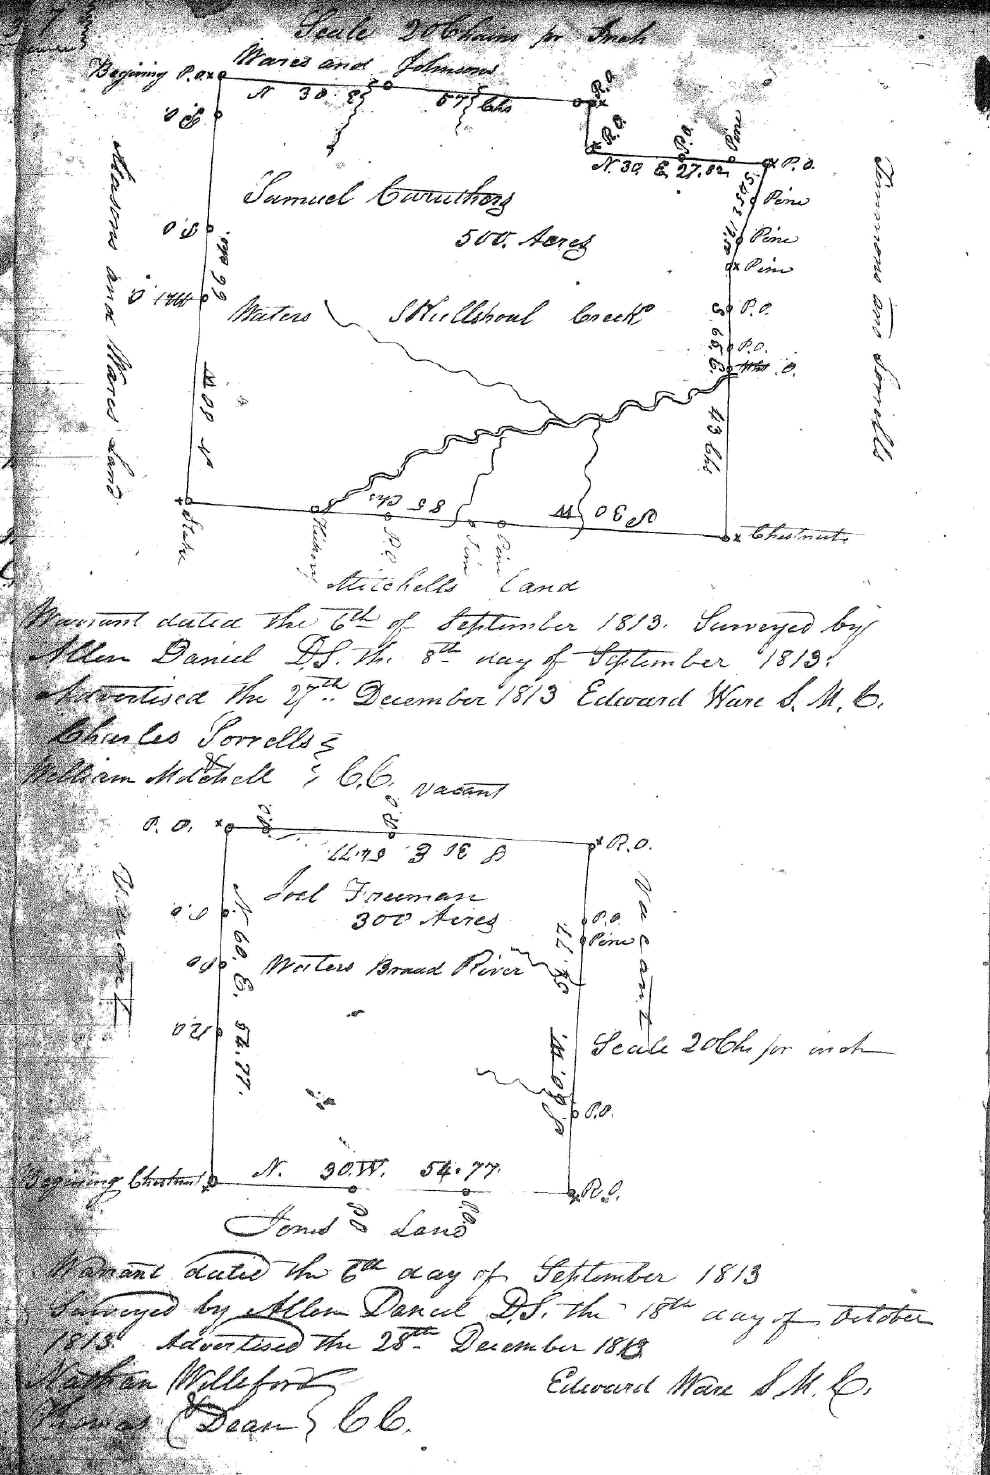 Scale 20 Chains pr Inch
Begining P.O. x
Wares and Johnsons
R.O.
N 30 E 57 Chs
R.O.
P.O.
Pine
N. 30 E 27.82
x P.O.
Samuel Caruthers
500. Acres
Pine
Pine
Pine
Waters Skullshoal Creek
P.O.
P.O.
S 65. E. 43 Chs
N 60 W 66
Masons and Wares Land
Timmons and Sorrills
Stake
Hickory
P.O.
Pine
Pine
S 30 W 85 Chs
x Chestnut
Mitchells Land
Warrant dated the 6th of September 1813. Surveyed by
Allen Daniel D.S. the 8th day of September 1813.
Advertised the 27th December 1813 Edward Ware S. M. C.
Charles Sorrells
&
William Mitchell } C.C.
Vacant
P. O. x
P.O.
R.O.
x R.O.
S 30 E 54.77
Joel Freeman
300 Acres
P.O.
P.O.
Pine
Waters Broad River
N. 60. E. 54.77.
S 60. W. 54.77
Vacant
Vacant
P.O.
Scale 20 Chs pr inch
P.O.
N. 30.W. 54.77.
Begining Chestnut
x R.O.
P.O.
P.O.
Jones Land
Warrant dated the 6th day of September 1813
Surveyed by Allen Daniel D.S. the 18th day of October
1813. Advertised the 28th December 1813
Nathan Williford
Edward Ware S. M. C.
&
Thomas Dean } C.C.